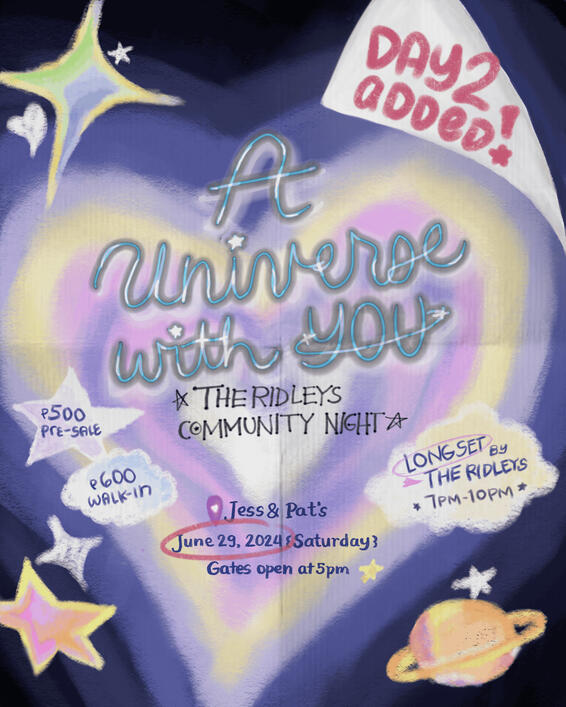 DAY 2
aDDeD!
A
Universe
with YOU
THE RIDLEYS
COMMUNITY NIGHT
₱500
PRE-SALE
₱600
WALK-in
LONG SET BY
THE RIDLEYS
7PM-10PM
Jess & Pat's
June 29, 2024 {Saturday}
Gates open at 5pm